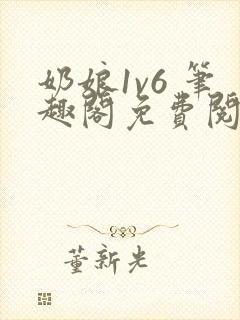 奶娘1v6 筆
趣閣免費閱
董新光